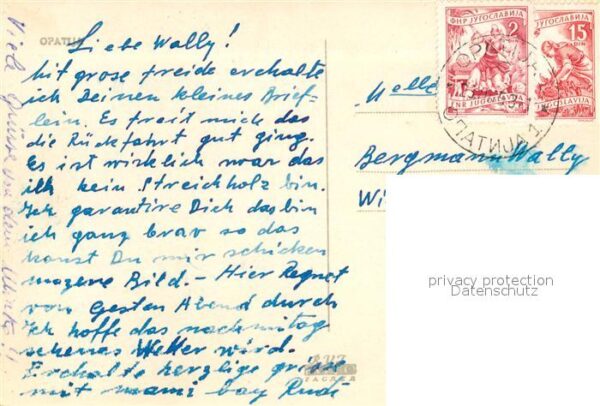 OPATIJA
Liebe Wally!
Mit grose freide erchalte
ich Deinen kleines Brief-
lein. Es freit mich das
die Rückfahrt gut ging.
Es ist wirklich war das
ich kein Streichholz bin.
Ich garantire Dich das bin
ich ganz brav so das
kanst Du mir schicken
Bild. - Hier Regnet
von Gesten Abend durch
Ich hoffe das nachmitag
schenes Wetter wird.
Erchalte herzlige grüse
mit mami Rudi
Viele Grüsse von dem
ФНР ЈУГОСЛАВИЈА
2
FNR JUGOSLAVIJA
ЈУГОСЛАВИЈА
15
JUGOSLAVIJA
ОПАТИЈА 1
Bergmann Wally
Wi
privacy protection
Datenschutz
ZAGREB